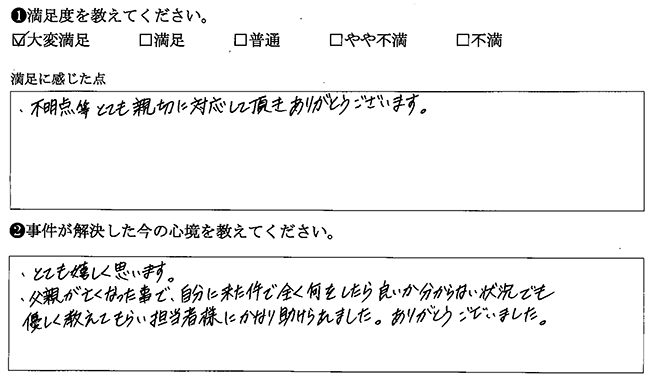 ❶満足度を教えてください。
☑大変満足 □満足 □普通 □やや不満 □不満
満足に感じた点
・不明点等とても親切に対応して頂きありがとうございます。
❷事件が解決した今の心境を教えてください。
・とても嬉しく思います。
・父親が亡くなった事で、自分に来た件で全く何をしたら良いか分からない状況でも
優しく教えてもらい担当者様にかなり助けられました。ありがとうございました。